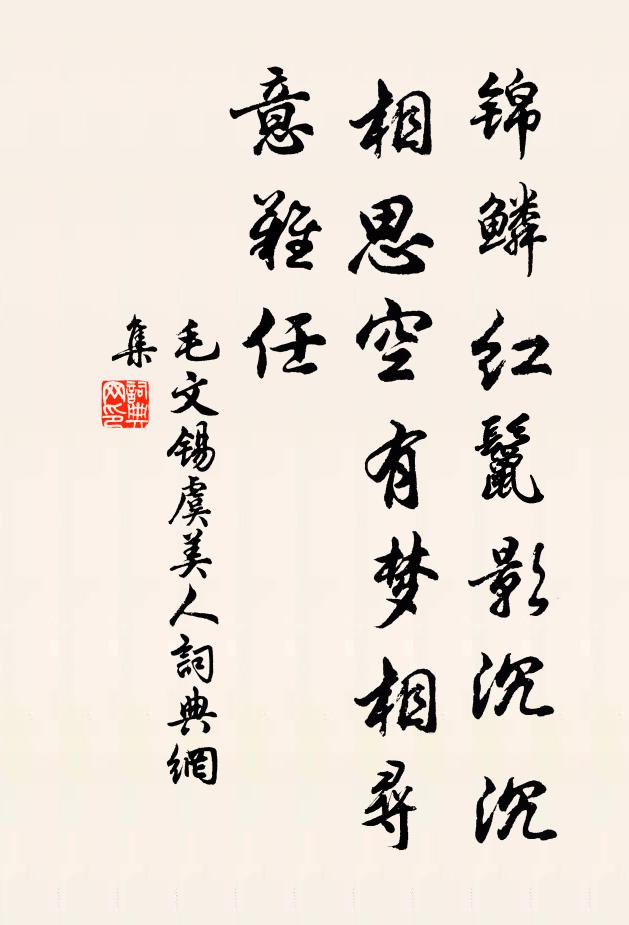 锦鳞红鬣影沉沉
相思空有梦相尋
意難任
毛文锡虞美人詞典網
集
詞典
网印